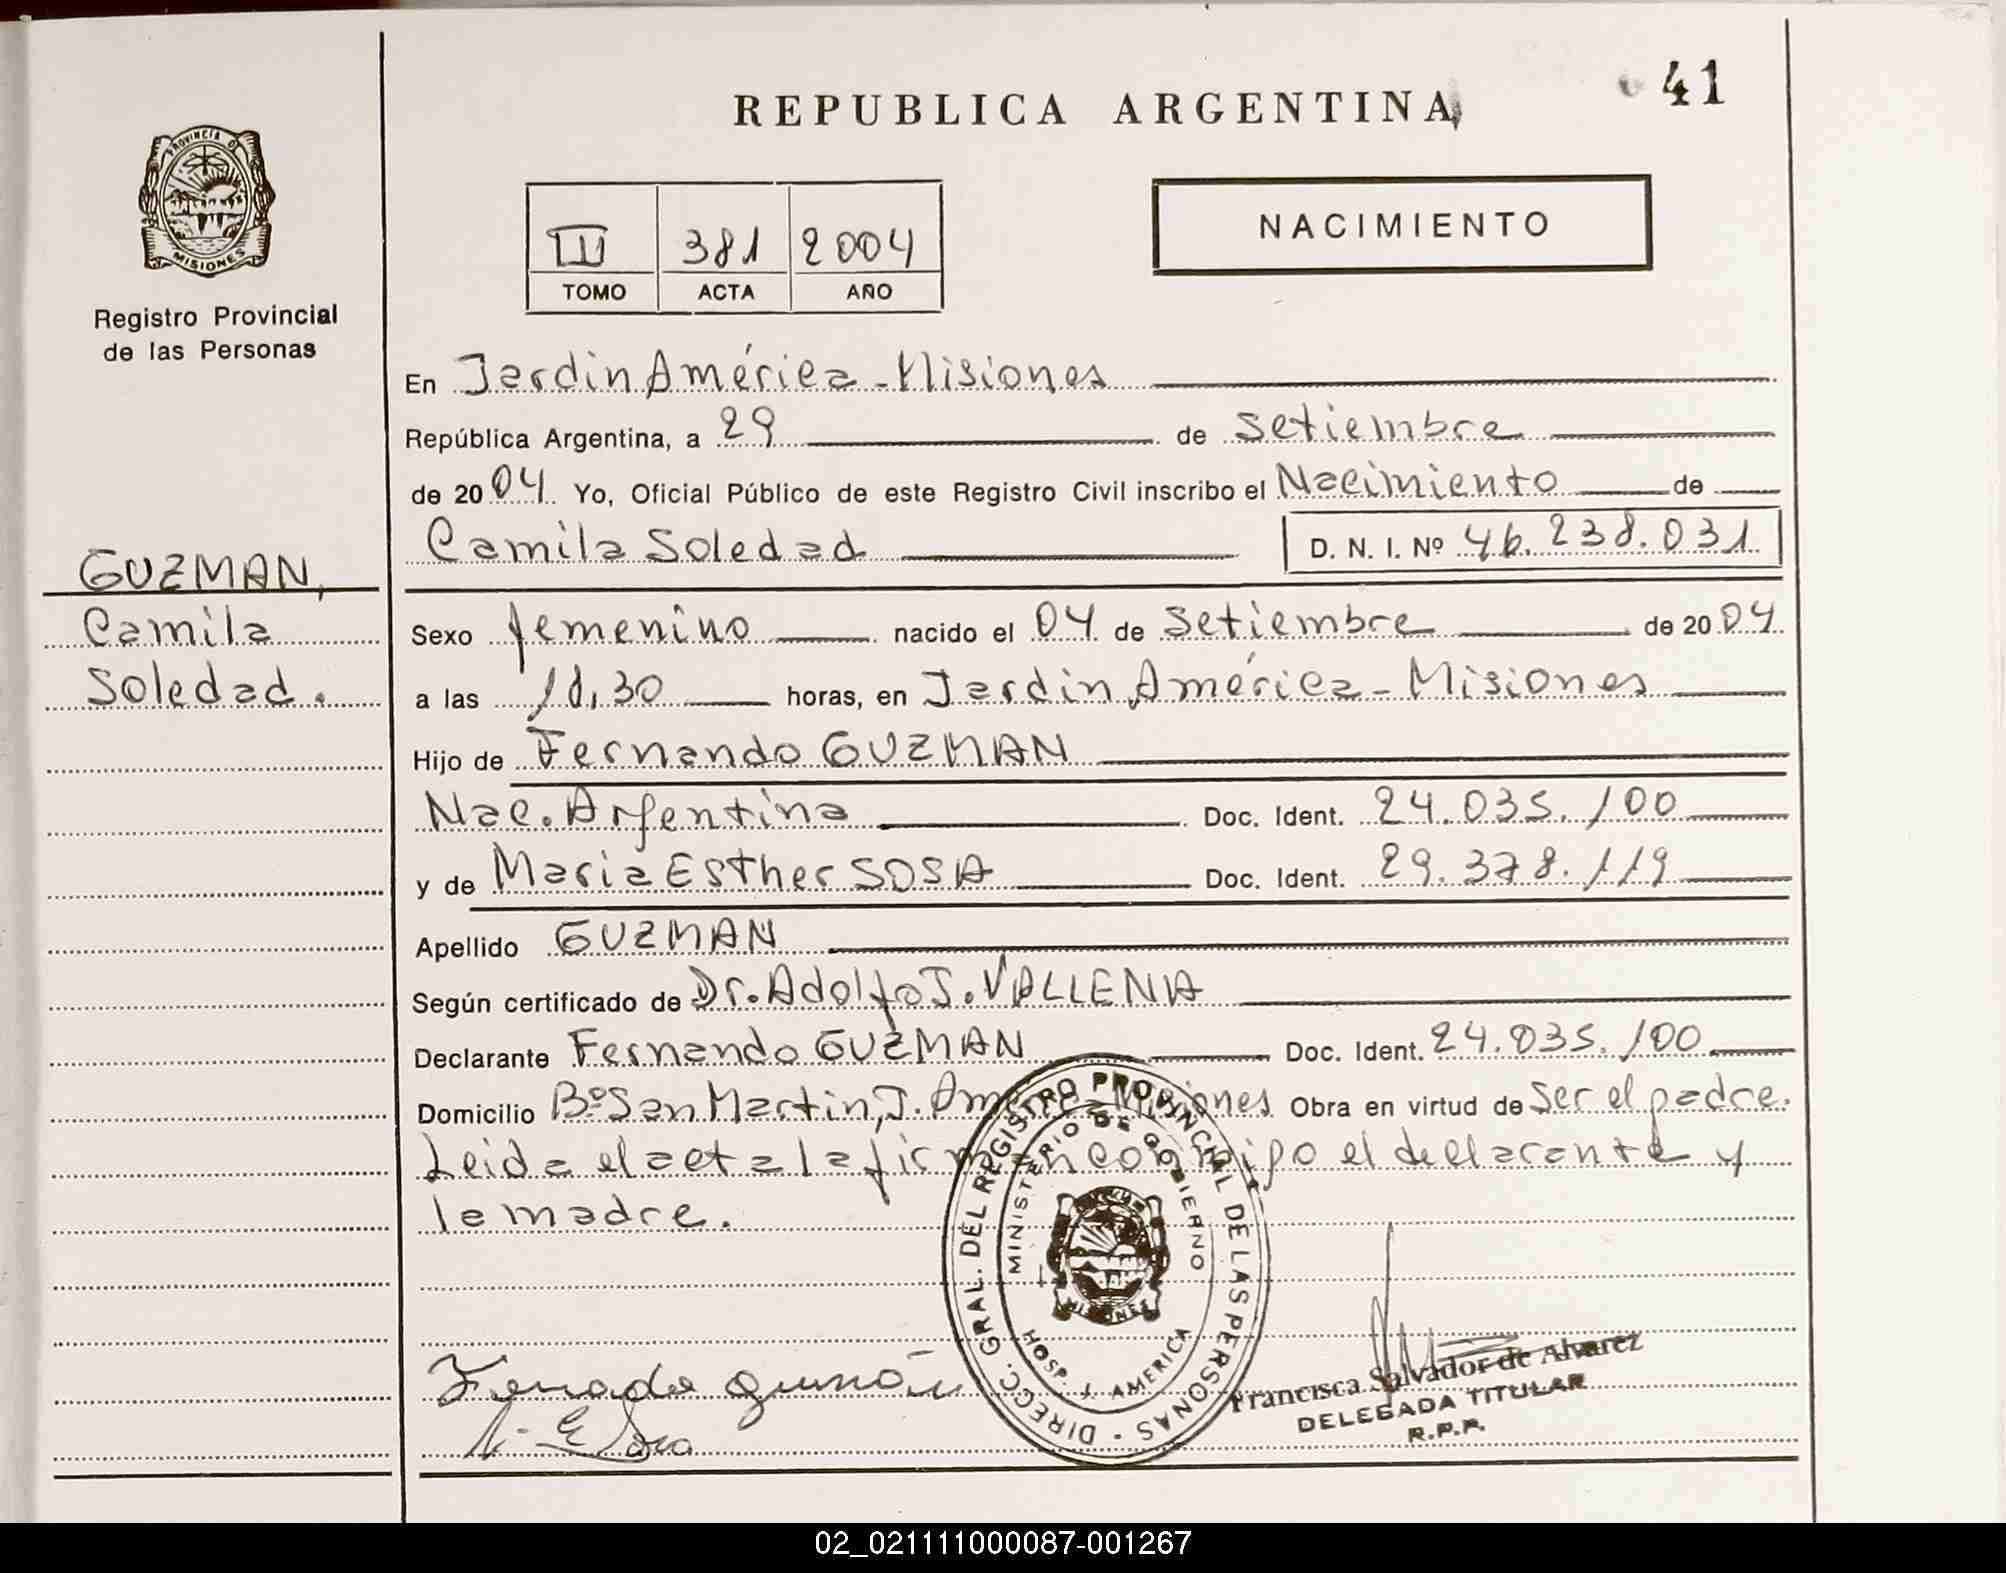 REPUBLICA ARGENTINA
41
PROVINCIA DE
MISIONES
Registro Provincial
de las Personas
III 381 2004
TOMO ACTA AÑO
NACIMIENTO
En Jardin América - Misiones
República Argentina, a 29 de Setiembre
de 2004. Yo, Oficial Público de este Registro Civil inscribo el Nacimiento de
Camila Soledad D. N. I. Nº 46.238.031
GUZMAN,
Camila
Soledad.
Sexo femenino nacido el 04 de Setiembre de 2004
a las 10,30 horas, en Jardin América - Misiones
Hijo de Fernando GUZMAN
Nac. Argentina Doc. Ident. 24.035.100
y de Maria Esther SOSA Doc. Ident. 29.378.119
Apellido GUZMAN
Según certificado de Dr. Adolfo J. VALLENIA
Declarante Fernando GUZMAN Doc. Ident. 24.035.100
Domicilio Bº San Martin, J. Am Misiones Obra en virtud de Ser el padre.
Leida el acta la firman conmigo el declarante y
la madre.
DIRECC. GRAL. DEL REGISTRO PROVINCIAL DE LAS PERSONAS
MINISTERIO DE GOBIERNO
MISIONES
HOSP. J. AMERICA
Fernado Guzmán
M. E Sosa
Francisca Salvador de Alvarez
DELEGADA TITULAR
R.P.P.
02_021111000087-001267